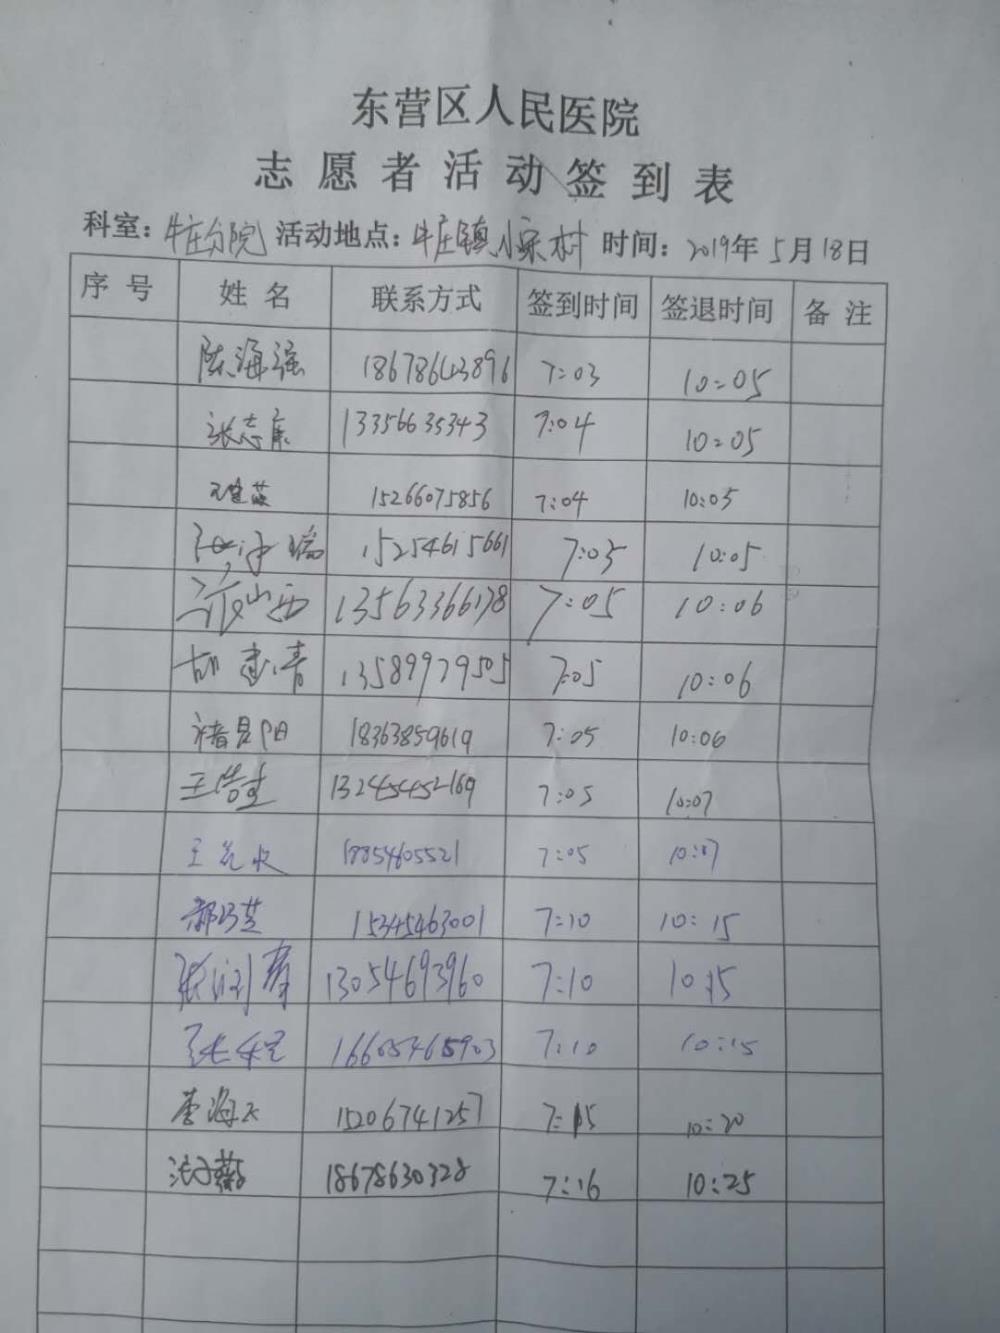 东营区人民医院
志愿者活动签到表
科室：牛庄分院 活动地点：牛庄镇小宋村 时间：2019年5月18日
序号 姓名 联系方式 签到时间 签退时间 备注
陈海强 18678643896 7:03 10:05
张志康 13356635343 7:04 10:05
15266075856 7:04 10:05
15254615661 7:03 10:05
山西 13563366178 7:05 10:06
胡建清 13589979505 7:05 10:06
褚昆阳 18363859619 7:05 10:06
王 13245452169 7:05 10:07
王 18854605521 7:05 10:07
郝巧芝 15345463001 7:10 10:15
张 13054693960 7:10 10:15
张 16605465903 7:10 10:15
李海 15206741257 7:15 10:20
18678630328 7:16 10:25